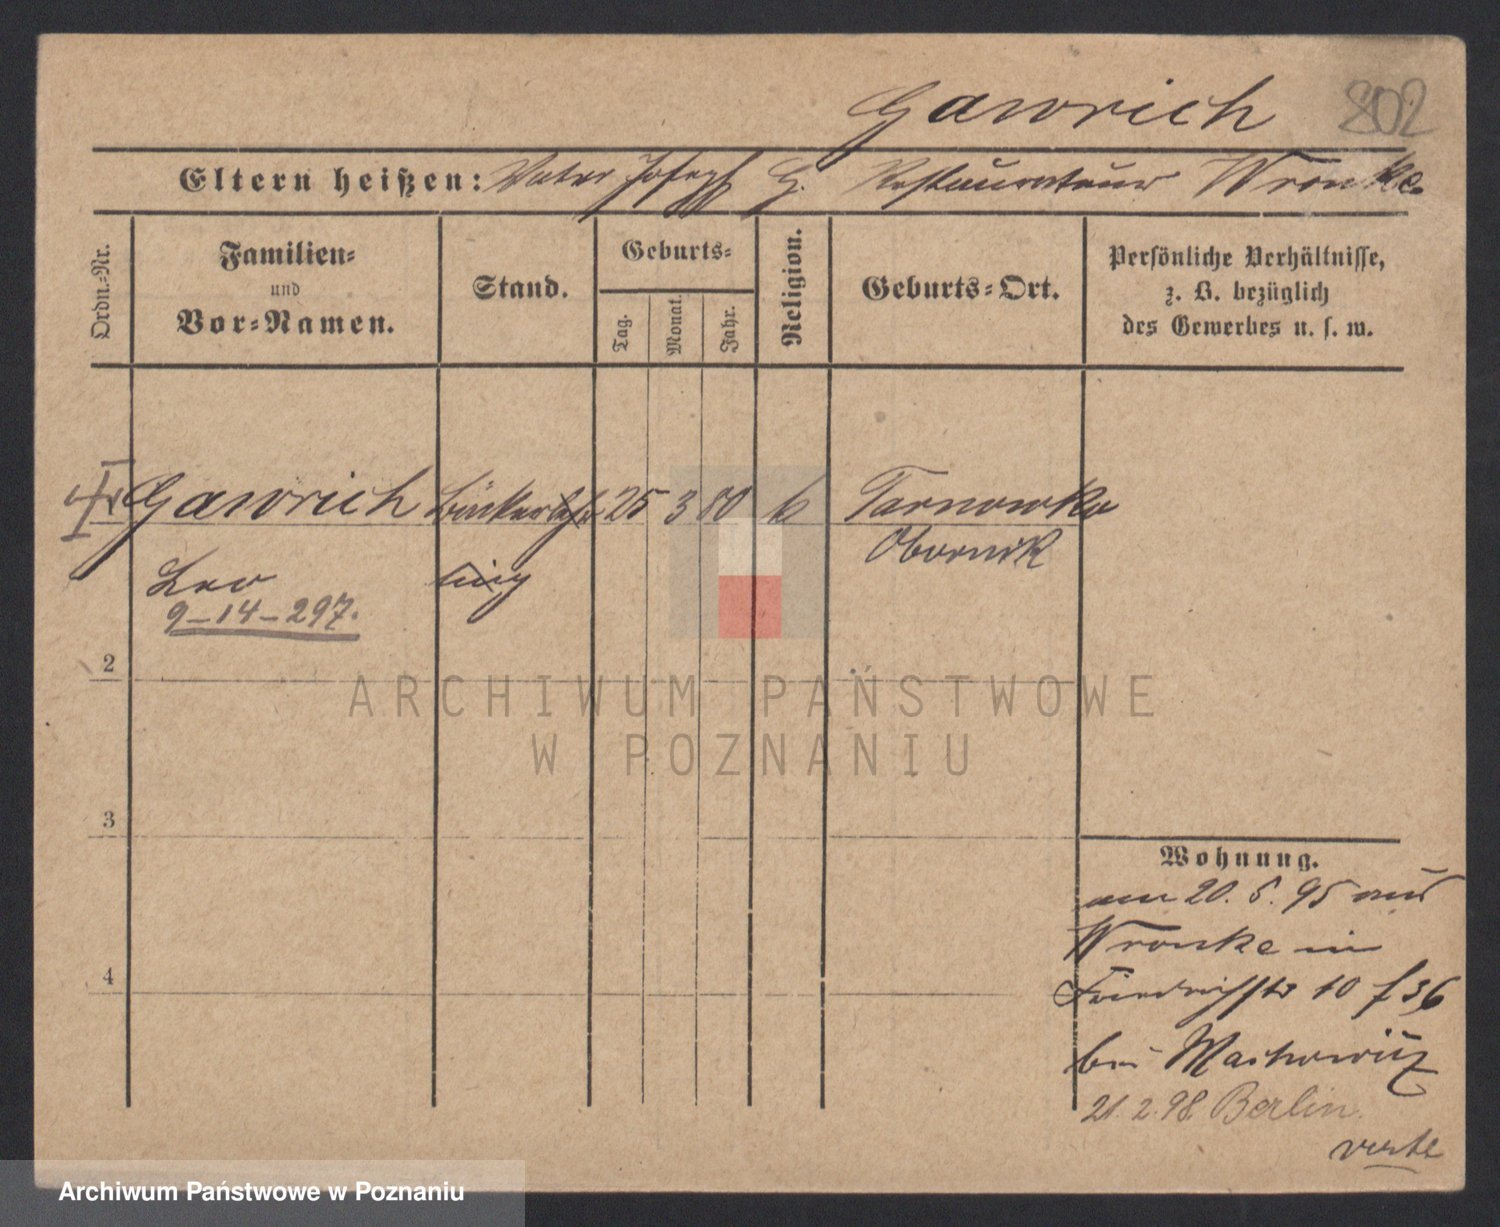 Gawrich 802
Eltern heißen: Vater Josef G. Restaurateur Wronke
Ordn.-Nr.
Familien-
und
Vor-Namen.
Stand.
Geburts-
Tag.
Monat.
Jahr.
Religion.
Geburts-Ort.
Persönliche Verhältnisse,
z. B. bezüglich
des Gewerbes u. s. w.
Gawrich Bäckerlehr 25 3 80 Tarnowko
Obornik
Leo ling
9-14-297.
2
3
4
Wohnung.
am 20. 5. 95 aus
Wronke in
Friedrichstr 10 f 36
bei
21. 2. 98. Berlin.
verte
ARCHIWUM PAŃSTWOWE
W POZNANIU
Archiwum Państwowe w Poznaniu